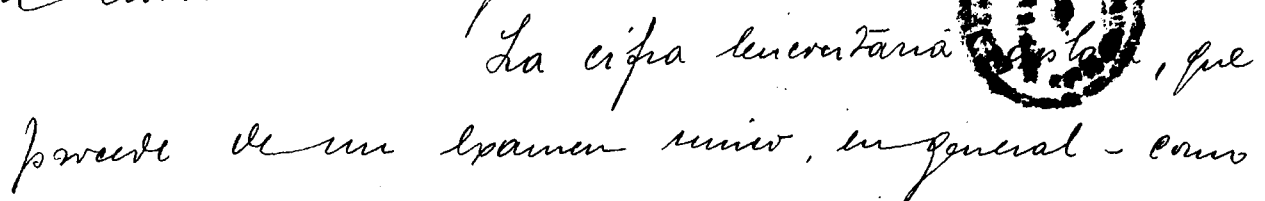 La cifra leucocitaria aislada, que
procede de un examen unico, en general - como